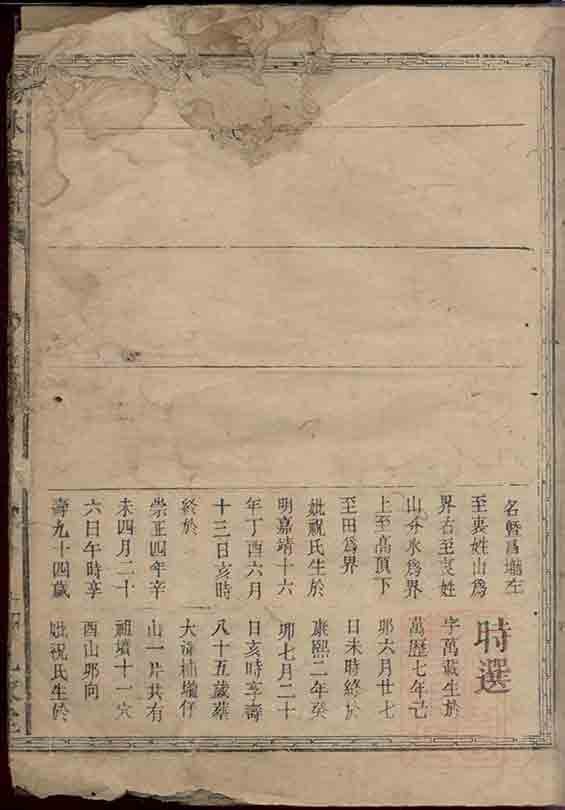 名暨昌壠左
至袁姓山爲
界右至袁姓
山分水爲界
上至高頂下
至田爲界
妣祝氏生於
明嘉靖十六
年丁酉六月
十三日亥時
終於
崇正四年辛
未四月二十
六日午時享
壽九十四歲
時選
字萬載生於
萬歷七年己
卯六月廿七
日未時終於
康熙二年癸
卯七月二十
日亥時享壽
八十五歲葬
大 壠仔
山一片共有
祖墳十一穴
酉山卯向
妣祝氏生於